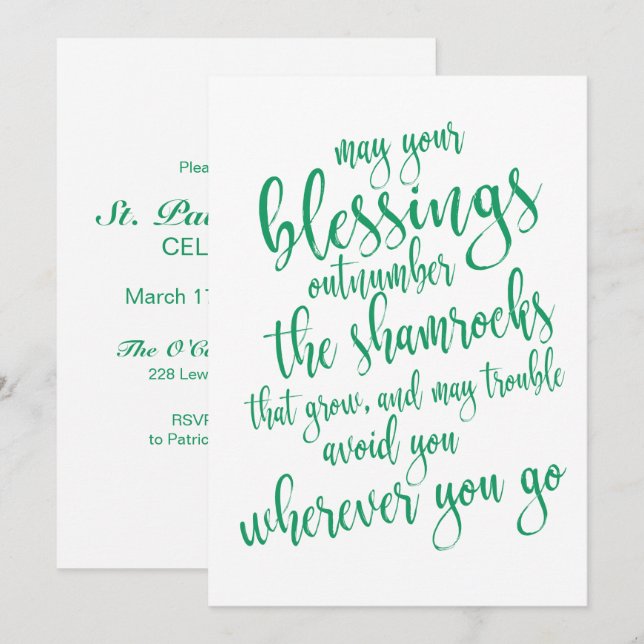 Plea
St. Pa
CEL
March 17
The O'C
228 Lew
RSVP
to Patric
may your
blessings
outnumber
the shamrocks
that grow, and may trouble
avoid you
wherever you go